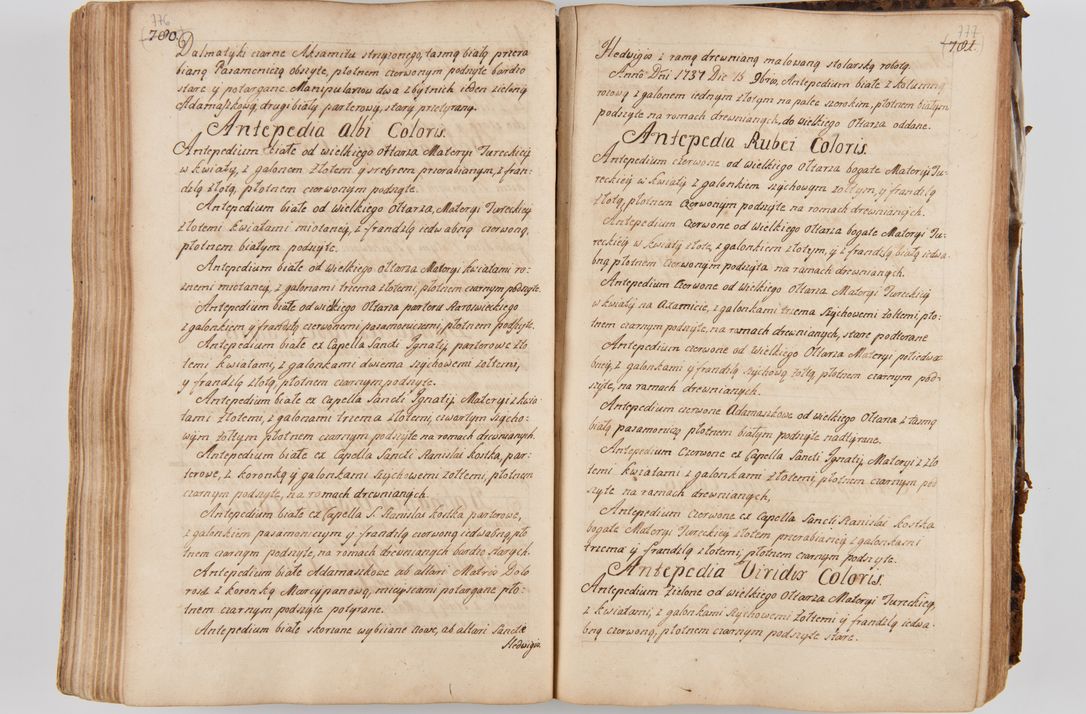 776
780.
Dalmatyki czarne Aksamitu strzyzonego, tasmą białą przera
bianą Pasamoniczą obszyte, płotnem czerwonym podszyte bardzo
stare y potargane. Manipularzow dwa zbytnich ieden zielony
Adamaszkowy, drugi biały parterowy, stary przetyrany.
Antepedia Albi Coloris.
Antepedium białe od wielkiego Ołtarza Materyi Tureckiey
w kwiaty, z galonem złotem y srebrem przerabianym, z fran=
dzlą złotą, płotnem czerwonym podszyte.
Antepedium białe od wielkiego Ołtarza, Materyi Tureckiey
złotemi kwiatami miotaney, z frandzlą iedwabną czerwoną,
płotnem białym podszyte.
Antepedium białe od wielkiego Ołtarza Materyi kwiatami ro=
znemi miotaney, z galonami trzema złotemi, płotnem czarnym podszyte.
Antepedium białe od wielkiego Ołtarza parteru Staroswieckiego
z galonkiem y frandzlą czerwonemi pasamoniczemi, płotnem podszyte.
Antepedium białe ex Capella Sancti Ignatij, parterowe zło
temi kwiatami, z galonkami dwiema szychowemi zołtemi,
y frandzlą złotą, płotnem czarnym podszyte.
Antepedium białe ex Capella Sancti Ignatij Materyi z kwia
tami złotemi, z galonami trzema złotemi, czwartym szycho=
wym żołtym płotnem czarnym podszyte na romach drewnianych.
Antepedium białe ex Capella Sancti Stanislai kostka, par=
terowe, z koronką y galonkami szychowemi zołtemi, płotnem
czarnym podszyte, na romach drewnianych.
Antepedium białe ex Capella S. Stanislai kostka parterowe,
z galonkiem pasamoniczym y frandzlą czerwoną iedwabną pło
tnem czarnym podszyte, na romach drewnianych bardzo starych.
Antepedium białe Adamaszkowe ab altari Matris Dolo
rosæ z koronką Marcypanową, mieyscami potargane pło=
tnem czarnym podszyte potyrane.
Antepedium białe skorzane wybiiane nowe, ab altari Sanctæ
Hedwigis
777
781.
Hedwigis z ramą drewnianą malowaną stolarską robotą.
Anno Dni 1737 Die 15 9bris, Antepedium białe z kolumną
rosową z galonem iednym złotym na palec szerokim, płotnem białym
podszyte na romach drewnianych, do wielkiego Ołtarza oddane.
Antepedia Rubei Coloris.
Antepedium czerwone od wielkiego ołtarza bogate Materyi Tu=
reckiey w kwiaty z galonkiem szychowym zołtym, y frandzlą
złotą, płotnem czerwonym podszyte na romach drewnianych.
Antepedium czerwone od wielkiego Ołtarza bogate Materyi Tu=
reckiey w kwiaty złote, z galonkiem złotym, y z frandzlą białą iedwa
bną płotnem czerwonym podszyta na ramach drewnianych.
Antepedium Czerwone od wielkiego Ołtarza Materyi Tureckiey
w kwiaty na Axamicie, z galonkami trzema szychowemi żołtemi pło=
tnem czarnym podszyte, na ramach drewnianych, stare podterane
Antepedium czerwone od wielkiego Ołtarza Materyi pułiedwa
bney, z galonkami y frandzlą szychową żołtą płotnem czarnym pod=
szyte, na ramach drewnianych.
Antepedium czerwone Adamaszkowe od wielkiego Ołtarza z tasmą
białą pasamoniczą płotnem białym podszyte nadtyrane.
Antepedium Czerwone ex Capella Sancti Ignatij Materyi z zło
temi kwiatami z galonkami złotemi, płotnem czarnym pod
szyte na ramach drewnianych,
Antepedium Czerwone ex Capella Sancti Stanislai kostka
bogate Materyi Tureckiey złotem przerabianey z galonkami
trzema y frandzlą złotemi, płotnem czarnym podszyte.
Antepedia Viridis Coloris.
Antepedium zielone od wielkiego Ołtarza Materyi Tureckiey,
z kwiatami, z galonkami szychowemi żołtemi y frandzlą iedwa=
bną czerwoną, płotnem czarnym podszyte stare.